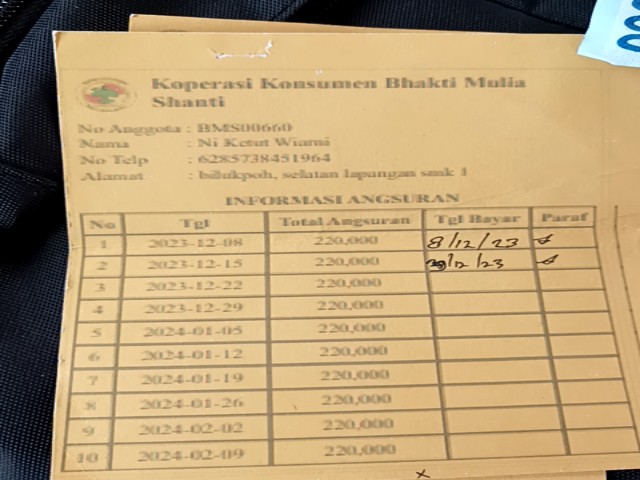 Koperasi Konsumen Bhakti Mulia
Shanti
No Anggota : BMS00660
Nama : Ni Ketut Wiarni
No Telp : 6285738451964
Alamat : bilukpoh, selatan lapangan smk 1
INFORMASI ANGSURAN
No Tgl Total Angsuran Tgl Bayar Paraf
1 2023-12-08 220,000 8/12/23
2 2023-12-15 220,000 /12/23
3 2023-12-22 220,000
4 2023-12-29 220,000
5 2024-01-05 220,000
6 2024-01-12 220,000
7 2024-01-19 220,000
8 2024-01-26 220,000
9 2024-02-02 220,000
10 2024-02-09 220,000
x